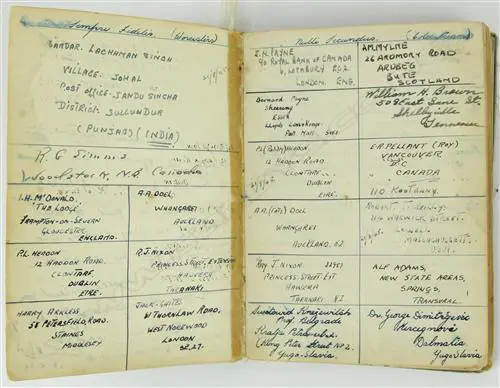 Semper Fidelis. (Worcesters)
SARDAR. LACHHMAN SINGH
VILLAGE. JOHAL
POST OFFICE. JANDU SINGHA
DISTRICT. JULLUNDUR
(PUNJAB) (INDIA)
R. G. Simms
Woodstock, N.B. Canada
I.H. McDONALD.
"THE LODGE"
FRAMPTON-ON-SEVERN
GLOUCESTER.
ENGLAND.
A.A. DOEL.
WHANGAREI
AUCKLAND
P.L. HEDDON
12 HADDON ROAD.
CLONTARF.
DUBLIN
EIRE.
R.J. NIXON
PRINCESS STREET, EXTENSION
HAWERA
TARANAKI
HARRY ARKLESS
58 PETERSFIELD ROAD.
STAINES
MIDDLESEX
JACK
THORNLAW ROAD,
WEST NORWOOD
LONDON
SE.27.
Nulli Secundus. (Coldstreams)
E.N. PAYNE
90 ROYAL BANK OF CANADA
6, LOTHBURY E.C.2.
LONDON. ENG.
A.M. MYLNE
26 ARDMORY ROAD
ARDBEG
BUTE
SCOTLAND
Bernard Payne
Sheering
Essex
William H. Brown
509 East Lane St.
Shelbyville
Tennessee
P.L. (Paddy) HEDDON.
12 HADDON ROAD.
CLONTARF.
DUBLIN
EIRE
E.A. PELLANT (ROY)
VANCOUVER
B.C
CANADA
110 KOOTANY.
A.A. DOEL
WHANGAREI
AUCKLAND. NZ
WARWICK STREET.
Lowell
MASSACHUSETTS
Roy J. NIXON.
PRINCESS STREET EXT
HAWERA
TARANAKI NZ
ALF ADAMS,
NEW STATE AREAS,
SPRINGS,
TRANSVAAL.
Prof. Belgrade
Kralja Petrovica
King Peter Street No 2.
Yugo-Slavia
Dr. George Dimitrijevic
Hercegnovi
Dalmatia
Yugoslavia